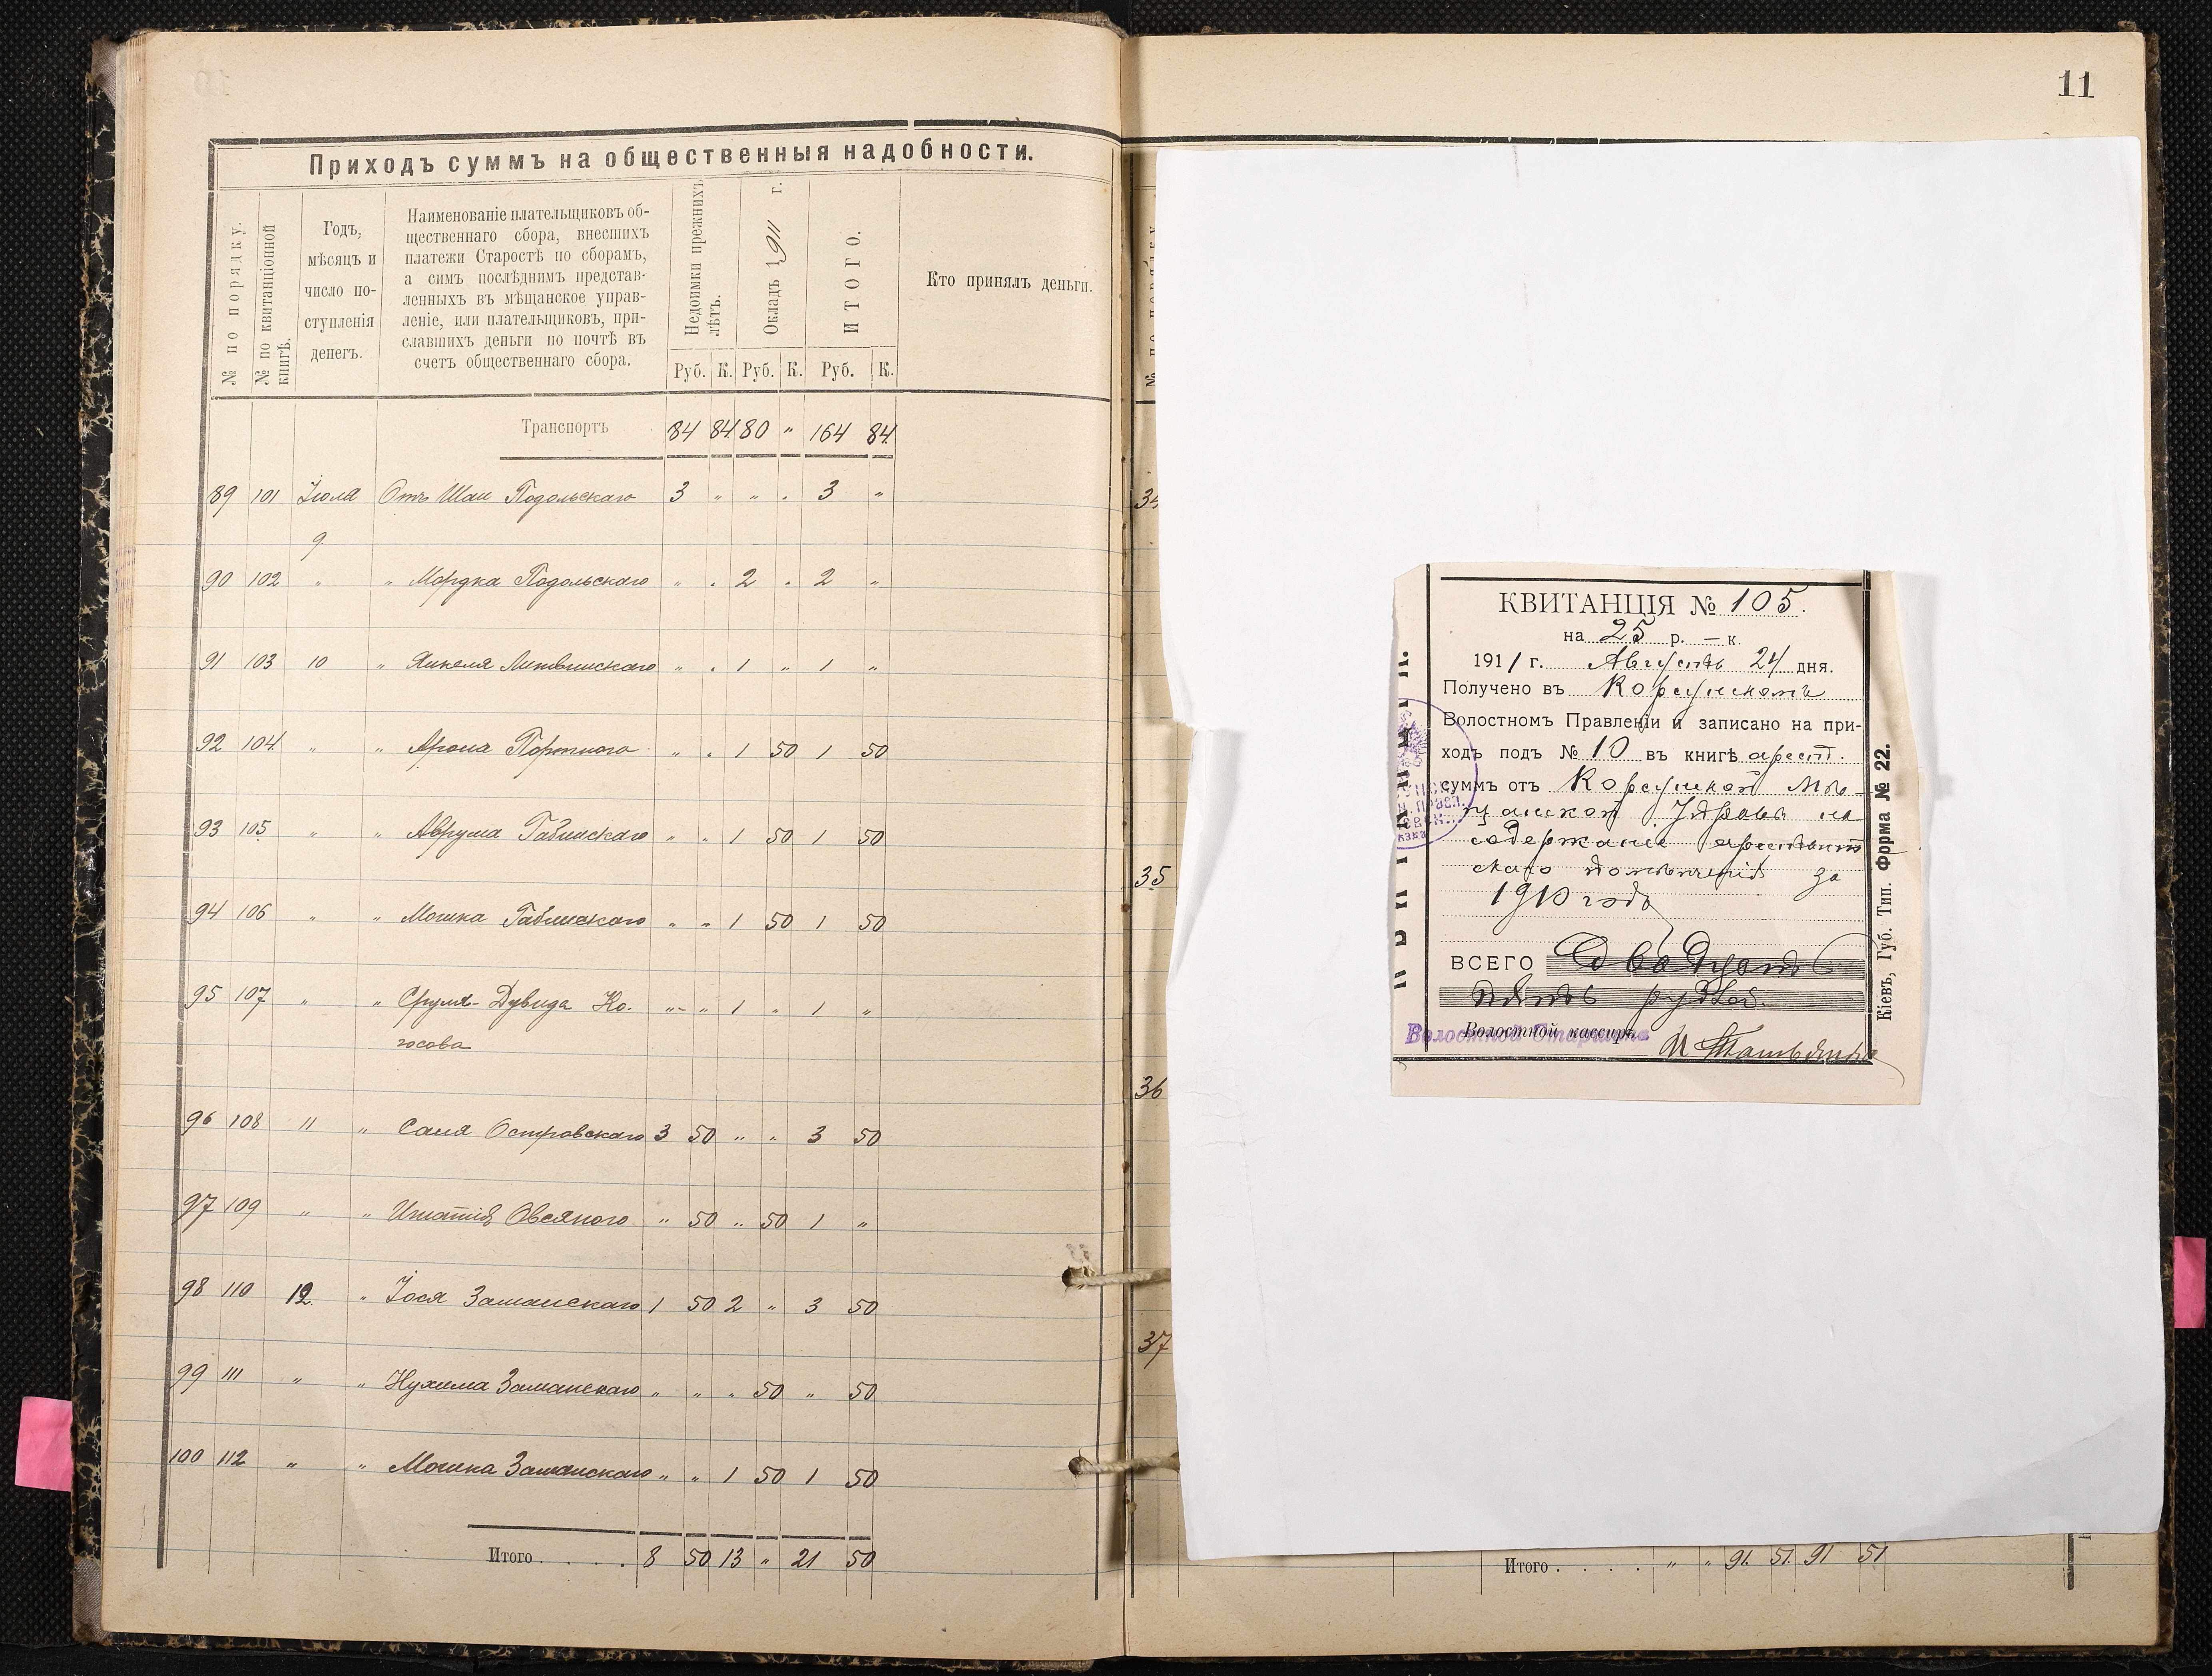 11
Приходъ суммъ на общественныя надобности.
№ по порядку.
№ по квитанціонной книгѣ.
Годъ,
мѣсяцъ и
число по-
ступленія
денегъ.
Наименованіе плательщиковъ об-
щественнаго сбора, внесшихъ
платежи Старостѣ по сборамъ,
а симъ послѣднимъ представ-
ленныхъ въ мѣщанское управ-
леніе, или плательщиковъ, при-
славшихъ деньги по почтѣ въ
счетъ общественнаго сбора.
Недоимки прежнихъ лѣтъ.
Окладъ 1911 г.
ИТОГО.
Кто принялъ деньги.
Руб. К. Руб. К. Руб. К.
Транспортъ 84 84 80 " 164 84
89 101 Іюля Отъ Шаи Подольскаго 3 " " " 3 "
9
90 102 " " Мордка Подольскаго " " 2 " 2 "
91 103 10 " Янкеля Литвинскаго " " 1 " 1 "
92 104 " " Арона Портного " " 1 50 1 50
93 105 " " Аврума Габинскаго " " 1 50 1 50
94 106 " " Мошка Габинскаго " " 1 50 1 50
95 107 " " Сруля-Дувида Ко- " " 1 " 1 "
госова
96 108 11 " Саля Островскаго 3 50 " " 3 50
97 109 " " Игнатія Овсяного " 50 " 50 1 "
98 110 12 " Іося Заманскаго 1 50 2 " 3 50
99 111 " " Нухима Заманскаго " " " 50 " 50
100 112 " " Мошка Заманскаго " " 1 50 1 50
Итого . . . . . 8 50 13 " 21 50
35
36
37
КВИТАНЦІЯ № 105.
на 25 р. — к.
1911 г. Августъ 24 дня.
Получено въ Корсунскомъ
Волостномъ Правленіи и записано на при-
ходъ подъ № 10 въ книгѣ арест.
суммъ отъ Корсунской Мѣ-
щанской Управы на
содержаніе арестант
скаго помѣщенія за
1910 годъ
ВСЕГО Двадцать
пять рублей.
Волостной кассиръ
Волостной Старшина
Кіевъ, Губ. Тип. Форма № 22.
Итого . . . . . " " 91 51 91 51